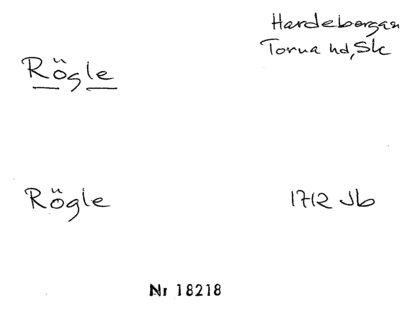 Hardeberga sn
Torna hd, Sk
Rögle
Rögle 1712 Jb
Nr 18218